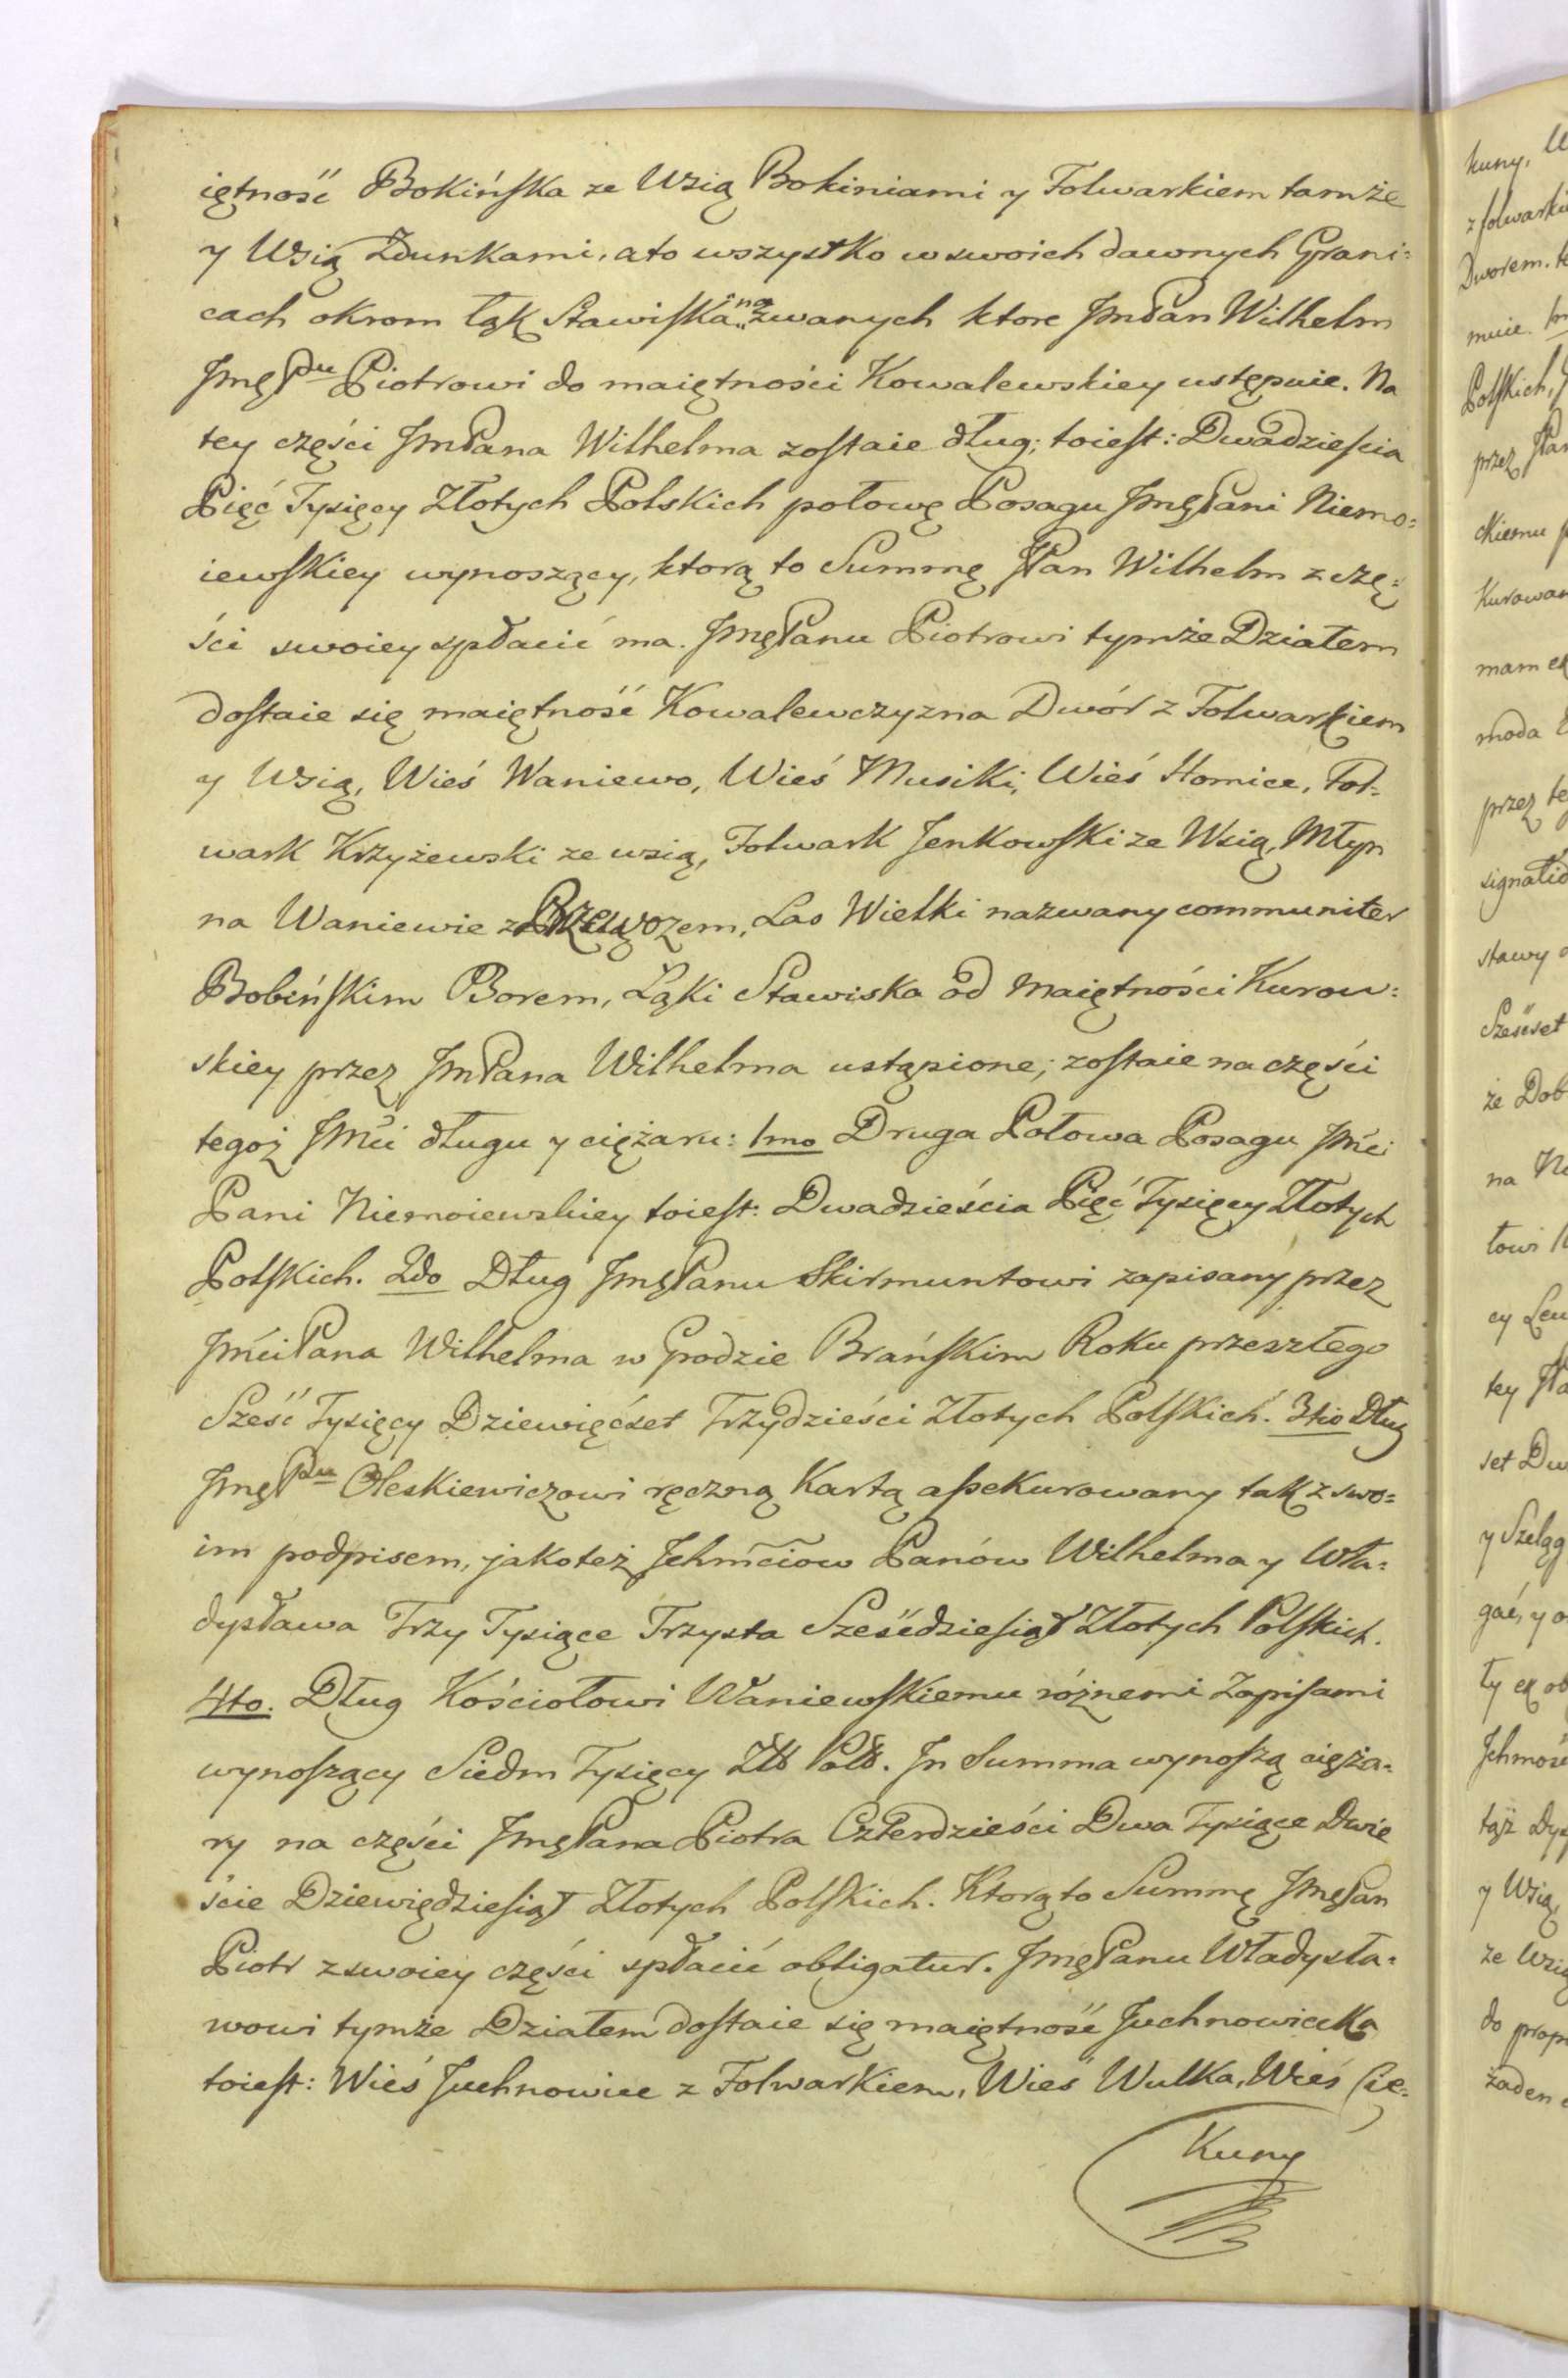 iętność Bokińska ze Wsią Bokiniami y Folwarkiem tamże
y Wsią Zdunkami, a to wszystko w swoich dawnych Grani=
cach okrom łąk Stawiska nazwanych ktore JmPan Wilhelm
JmęPnu Piotrowi do maiętności Kowalewskiey ustępuie. Na
tey części JmPana Wilhelma zostaie dług; toiest: Dwadzieścia
Pięć Tysięcy Złotych Polskich połowę Posagu JmęPani Niemo=
iewskiey wynoszący, ktorą to Summę JPan Wilhelm z czę=
ści swoiey spłacić ma. JmęPanu Piotrowi tymże Działem
dostaie się maiętność Kowalewczyzna Dwór z Folwarkiem
y Wsią, Wieś Waniewo, Wieś Musiki, Wieś Stomice, Fol=
wark Krzyżewski ze wsią, Folwark Jenkowski ze Wsią, Młyn
na Waniewie z Przewozem, Las Wielki nazwany communiter
Bobińskim Borem, Łąki Stawiska od Maiętności Kurow=
skiey przez JmPana Wilhelma ustąpione; zostaie na części
tegoż JMći długu y ciężaru: 1mo Druga Połowa Posagu Jmći
Pani Niemoiewskiey toiest: Dwadzieścia Pięć Tysięcy Złotych
Polskich. 2do Dług JmęPanu Skirmuntowi zapisany przez
JmćiPana Wilhelma w Grodzie Brańskim Roku przeszłego
Sześć Tysięcy Dziewięćset Trzydzieści Złotych Polskich. 3tio Dług
JmęPnu Oleskiewiczowi ręczną Kartą assekurowany tak z swo=
im podpisem, jakoteż Jchmćiow Panów Wilhelma y Wła=
dysława Trzy Tysiące Trzysta Sześćdziesiąt Złotych Polskich.
4to. Dług Kościołowi Waniewskiemu różnemi Zapisami
wynoszący Siedm Tysięcy Złł Poll. Jn Summa wynoszą cięża=
ry na części JmęPana Piotra Czterdzieści Dwa Tysiące Dwie
ście Dziewiędziesiąt Złotych Polskich. Ktorą to Summę JmęPan
Piotr z swoiey części spłacić obligatur. JmęPanu Władysła=
wowi tymże Działem dostaie się maiętność Juchnowicka
toiest: Wieś Juchnowice z Folwarkiem, Wieś Wulka, Wieś Cie=
Kuny